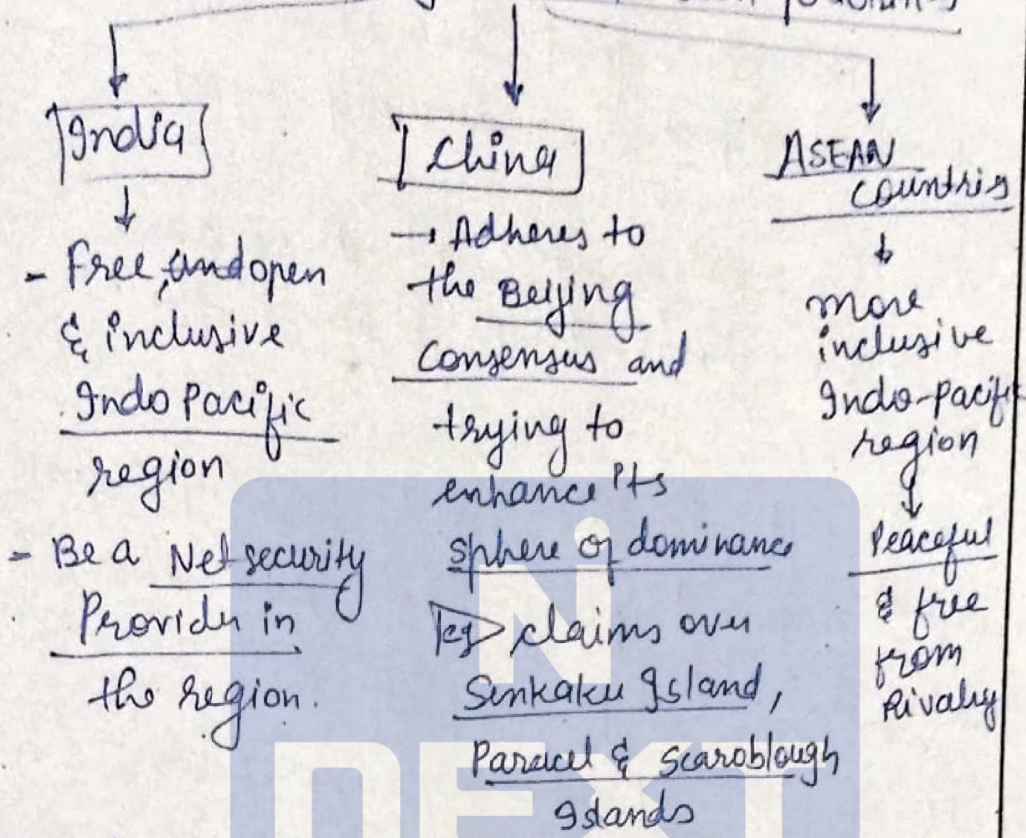 India
- Free, and open
& inclusive
Indo Pacific
region
- Be a Net security
Provider in
the region.
China
→ Adheres to
the Beijing
Consensus and
trying to
enhance its
sphere of dominance
eg> claims over
Senkaku Island,
Paracel & Scaroblough
Islands
ASEAN
countries
more
inclusive
Indo-pacific
region
Peaceful
& free
from
Rivalry
N
NEXT